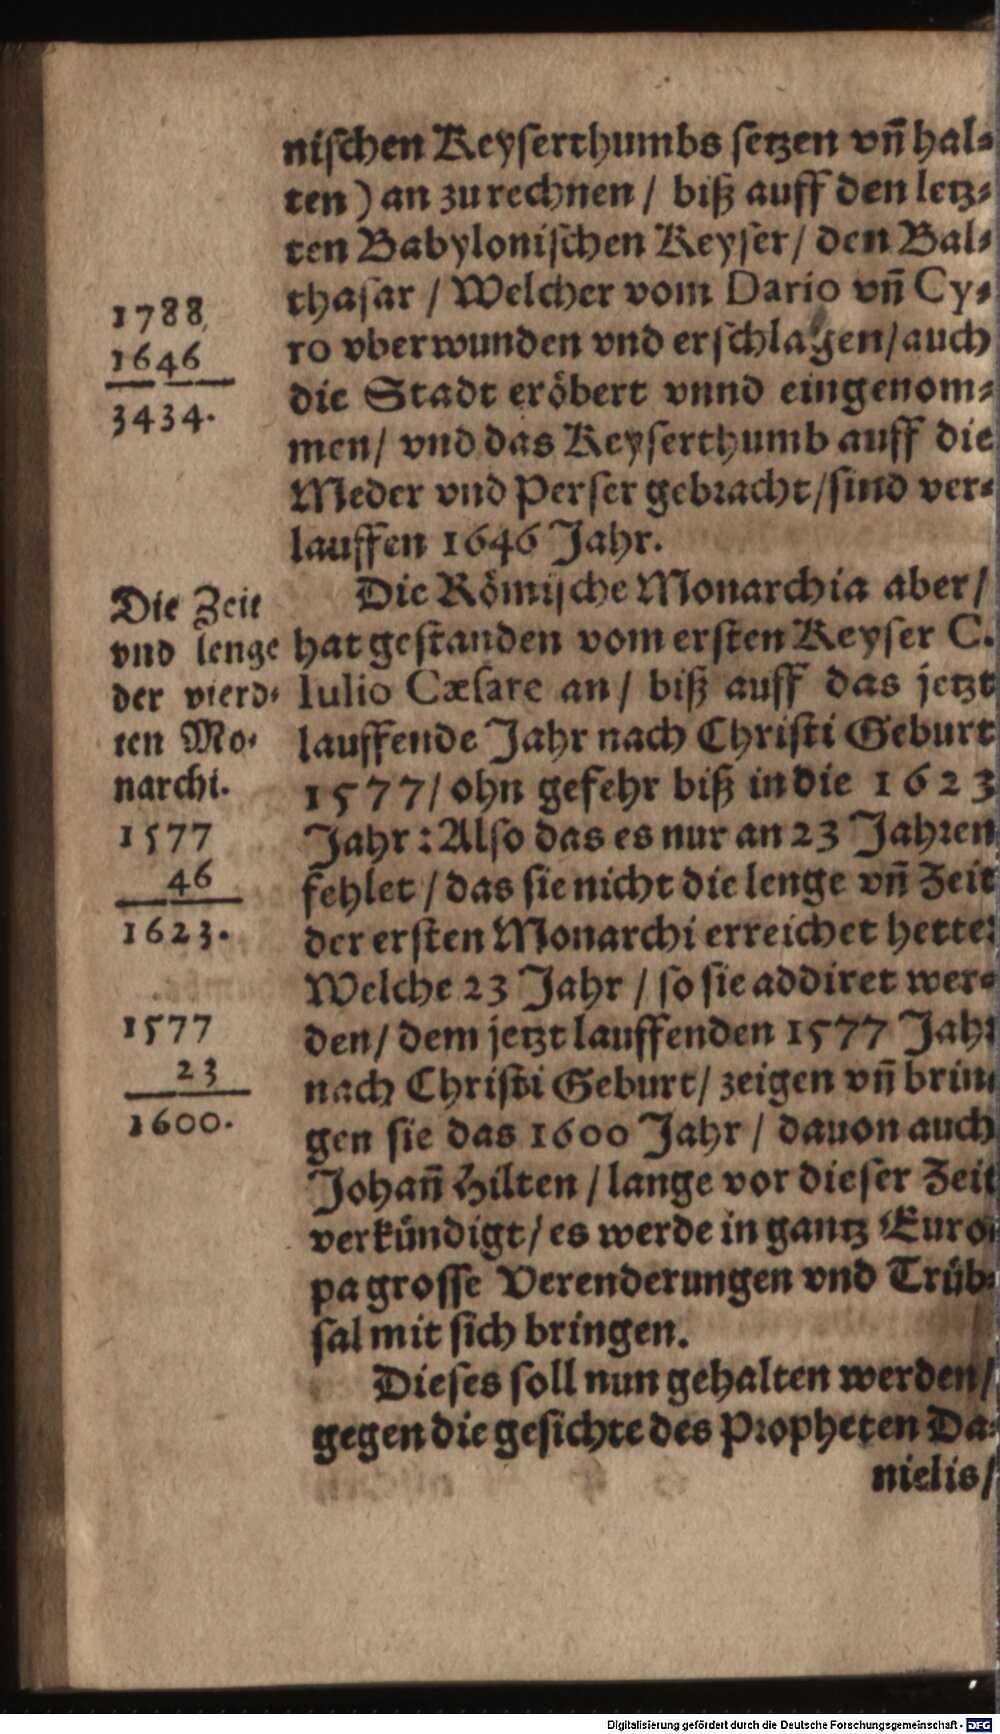 nischen Keyserthumbs setzen vn̄ hal⸗
ten) an zu rechnen / biß auff den letz⸗
ten Babylonischen Keyser / den Bal⸗
thasar / Welcher vom Dario vn̄ Cy⸗
ro vberwunden vnd erschlagen / auch
die Stadt eröbert vnnd eingenom⸗
men / vnd das Keyserthumb auff die
Meder vnd Perser gebracht / sind ver⸗
lauffen 1646 Jahr.
1788
1646
3434.
Die Römische Monarchia aber /
hat gestanden vom ersten Keyser C.
Iulio Cæsare an / biß auff das jetzt
lauffende Jahr nach Christi Geburt
1577 / ohn gefehr biß in die 1623
Jahr: Also das es nur an 23 Jahren
fehlet / das sie nicht die lenge vn̄ Zeit
der ersten Monarchi erreichet hette:
Welche 23 Jahr / so sie addiret wer⸗
den / dem jetzt lauffenden 1577 Jahr
nach Christi Geburt / zeigen vn̄ brin⸗
gen sie das 1600 Jahr / dauon auch
Johañ Hilten / lange vor dieser Zeit
verkündigt / es werde in gantz Euro⸗
pa grosse Verenderungen vnd Trüb⸗
sal mit sich bringen.
Die Zeit
vnd lenge
der vierd⸗
ten Mo⸗
narchi.
1577
46
1623.
1577
23
1600.
Dieses soll nun gehalten werden /
gegen die gesichte des Propheten Da⸗
nielis /
Digitalisierung gefördert durch die Deutsche Forschungsgemeinschaft - DFG